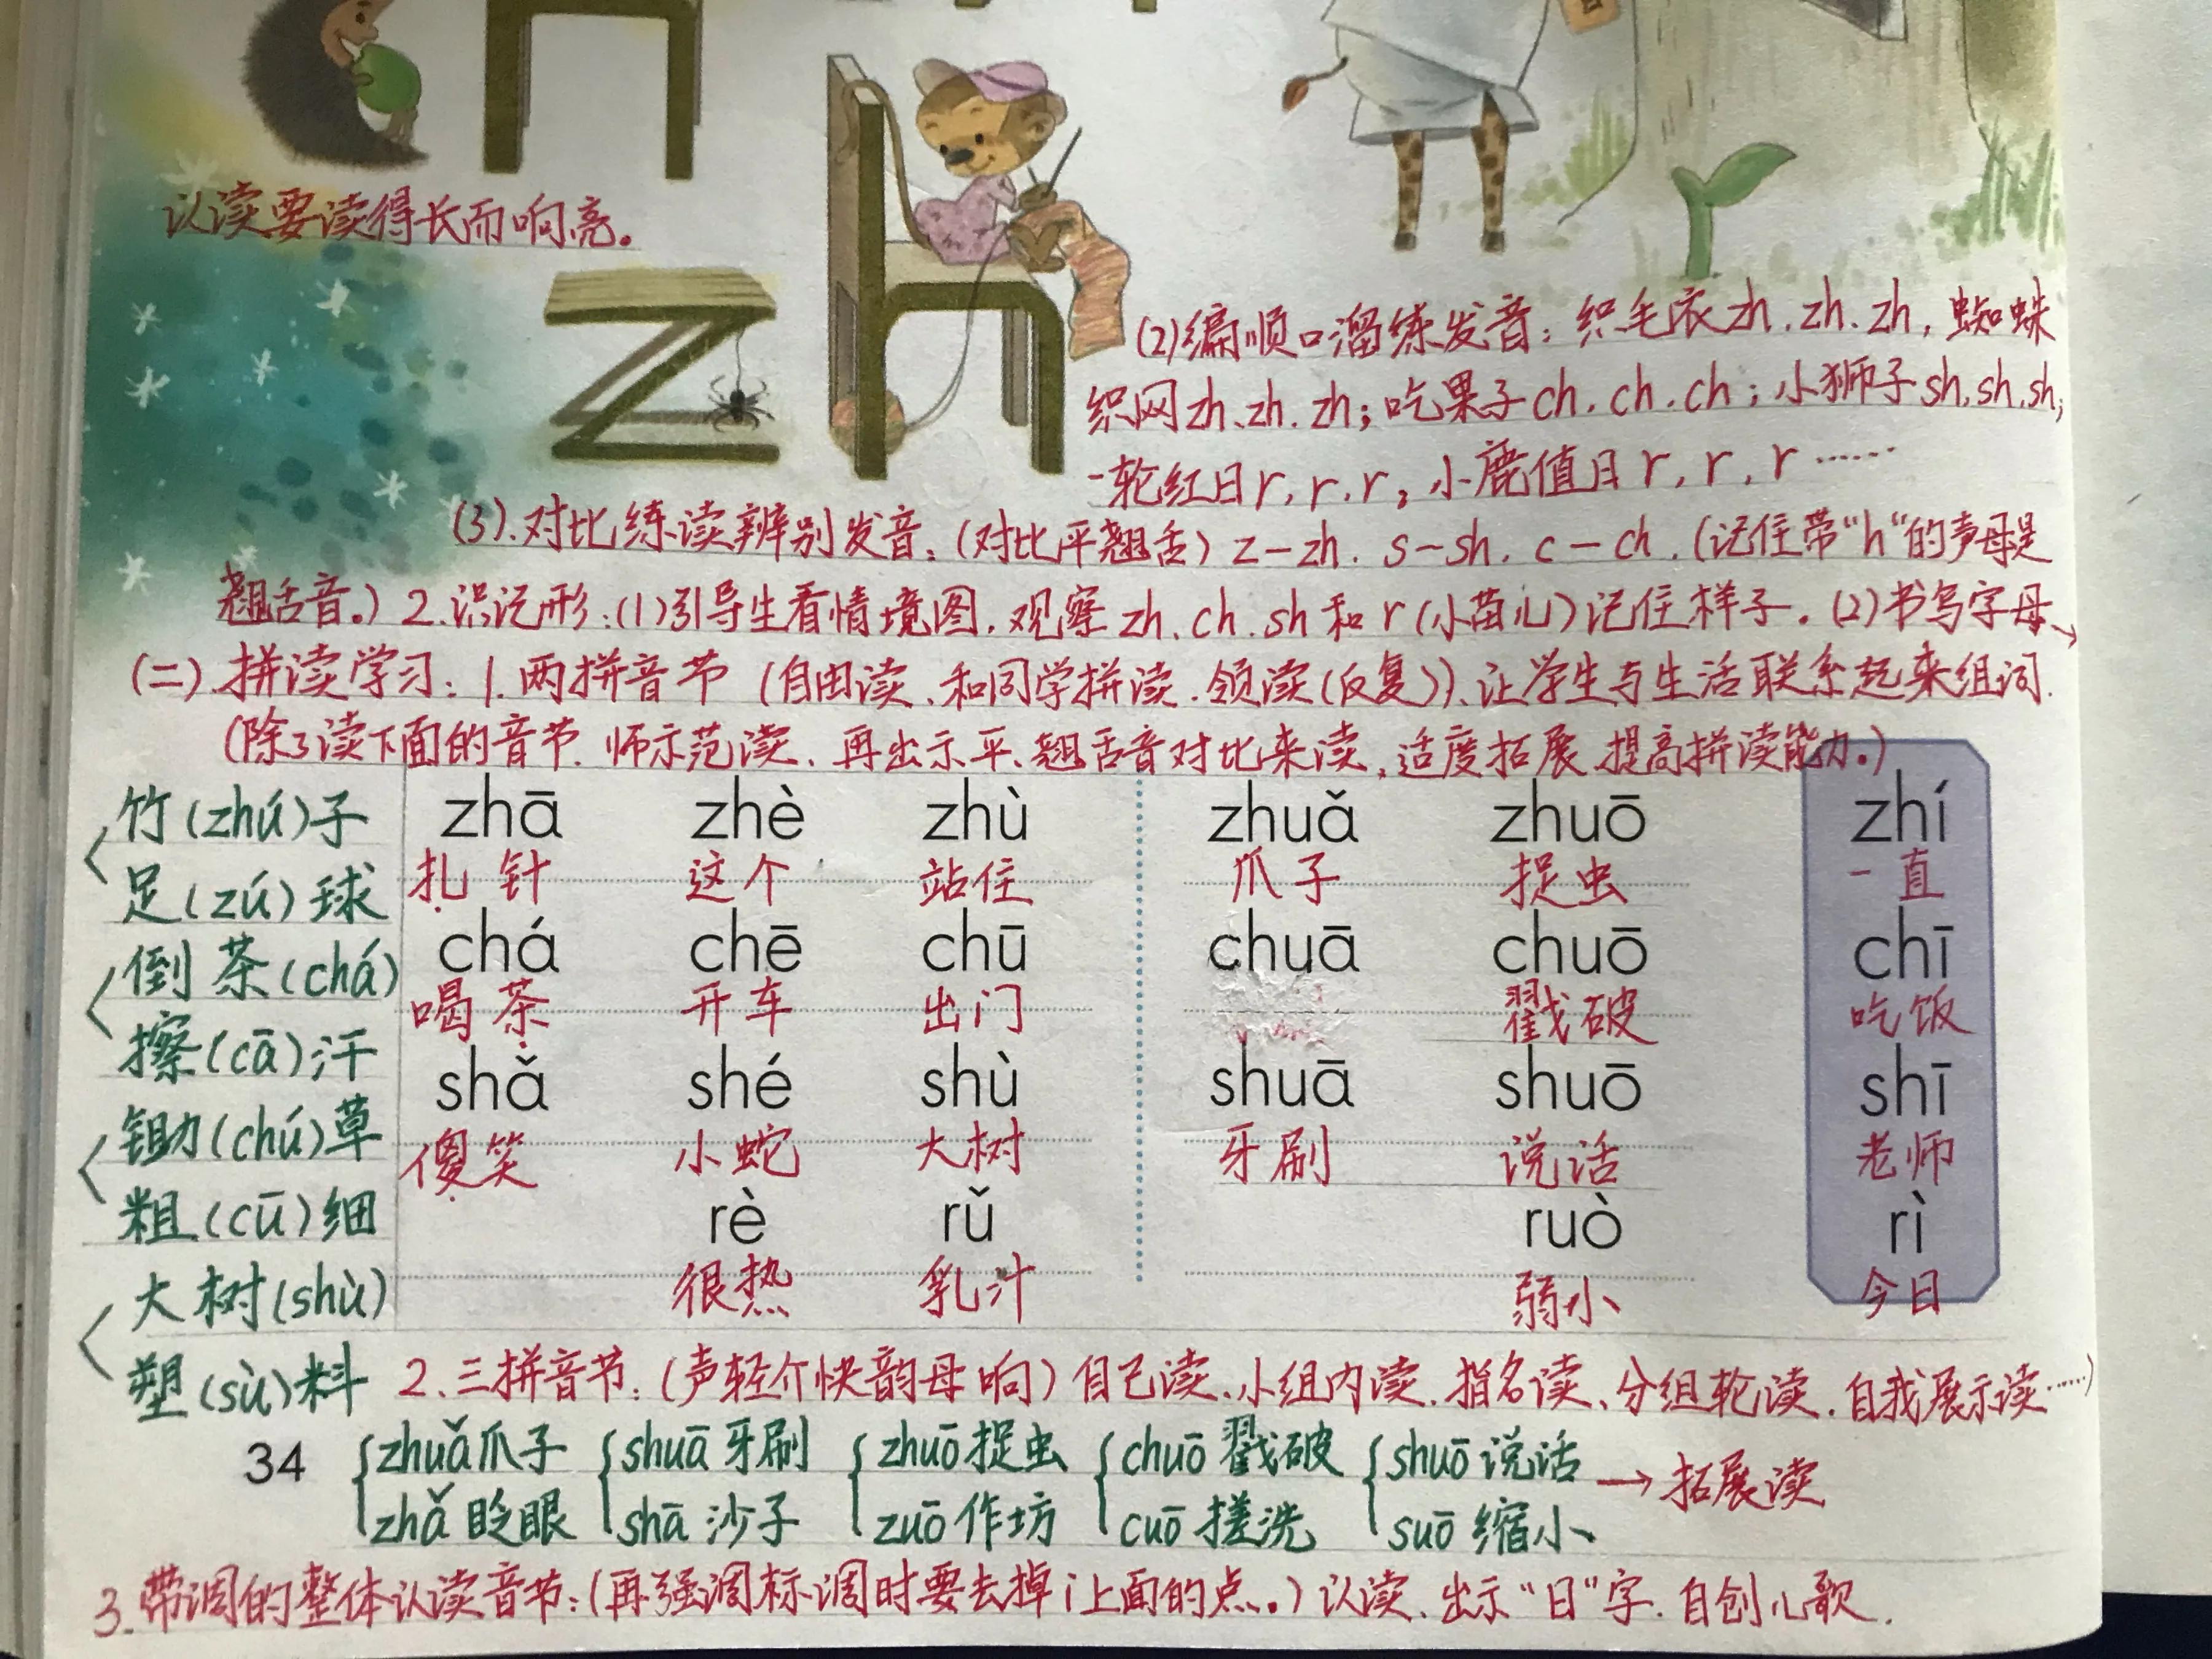 认读要读得长而响亮。
(2)编顺口溜练发音：织毛衣zh、zh、zh，蜘蛛
织网zh、zh、zh；吃果子ch、ch、ch；小狮子sh,sh,sh;
一轮红日r,r,r,小鹿值日r,r,r……
(3).对比练读辨别发音：(对比平翘舌) z—zh. s—sh. c—ch.(记住带"h"的声母是
翘舌音。) 2.识记形：(1)引导生看情境图,观察zh、ch、sh和r(小苗儿)记住样子。(2)书写字母→
(二).拼读学习：1.两拼音节 (自由读、和同学拼读、领读(反复))、让学生与生活联系起来组词.
(除了读下面的音节.师示范读、再出示平、翘舌音对比来读,适度拓展,提高拼读能力。)
竹(zhú)子 zhā zhè zhù zhuǎ zhuō zhí
足(zú)球 扎针 这个 站住 爪子 捉虫 一直
倒茶(chá) chá chē chū chuā chuō chī
喝茶 开车 出门 戳破 吃饭
擦(cā)汗 shǎ shé shù shuā shuō shī
锄(chú)草 傻笑 小蛇 大树 牙刷 说话 老师
粗(cū)细 rè rǔ ruò rì
大树(shù) 很热 乳汁 弱小 今日
塑(sù)料 2.三拼音节：(声轻介快韵母响)自己读、小组内读、指名读、分组轮读、自我展示读……)
34 zhuǎ爪子 shuā牙刷 zhuō捉虫 chuō戳破 shuō说话 → 拓展读
zhǎ眨眼 shā沙子 zuō作坊 cuō搓洗 suō缩小
3.带调的整体认读音节：(再强调标调时要去掉i上面的点。)认读、出示"日"字.自创儿歌.